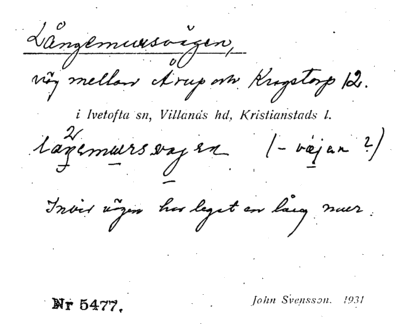 Långemursvägen,
väg mellan Årup och Krogstorp 12.
i Ivetofta sn, Villands hd, Kristianstads l.
(- väjan ?)
Invid vägen har legat en lång mur.
Nr 5477.
John Svensson. 1931